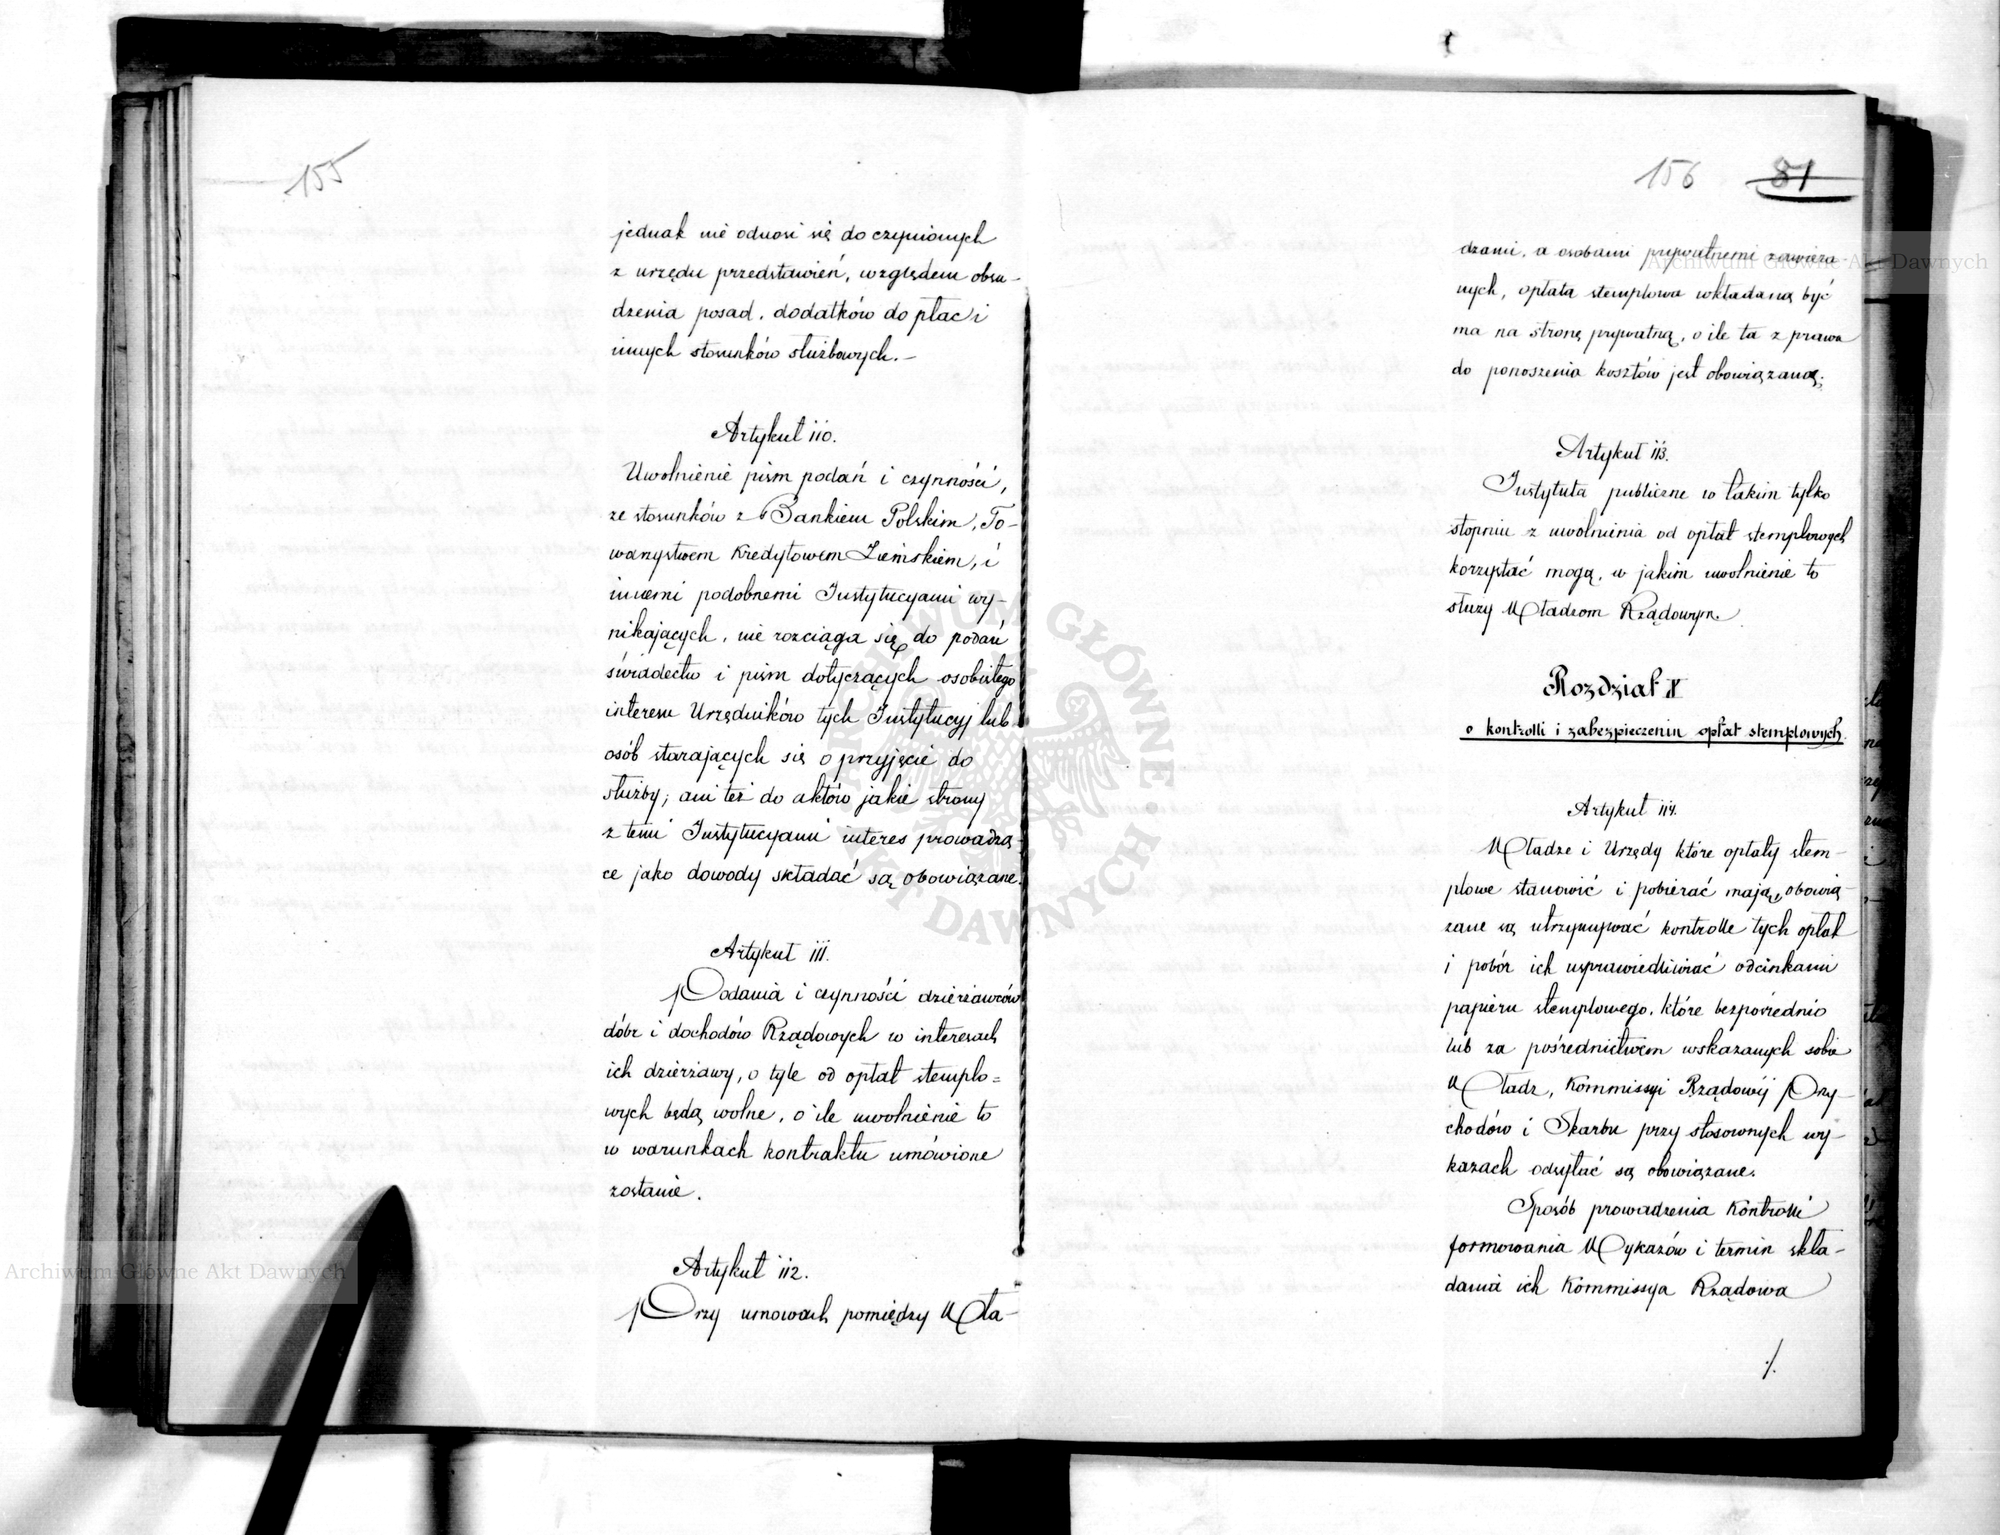 155
jednak nie odnosi się do czynionych
z urzędu przedstawień, względem obsa-
dzenia posad, dodatków do płac i
innych stosunków służbowych.-
Artykuł 110.
Uwolnienie pism podań i czynności,
ze stosunków z Bankiem Polskim, To-
warzystwem Kredytowem Ziemskiem, i
innemi podobnemi Instytucyami wy-
nikających, nie rozciąga się do podań
świadectw i pism dotyczących osobistego
interesu Urzędników tych Instytucyj lub
osób starających się o przyjęcie do
służby; ani też do aktów jakie strony
z temi Instytucyami interes prowadzą-
ce jako dowody składać są obowiązane.
Artykuł 111.
Podania i czynności dzierżawców
dóbr i dochodów Rządowych w interesach
ich dzierżawy, o tyle od opłat stemplo=
wych będą wolne, o ile uwolnienie to
w warunkach kontraktu umówione
zostanie.
Artykuł 112.
Przy umowach pomiędzy Wła-
156 81
dzami, a osobami prywatnemi zawiera-
nych, opłata stemplowa wkładaną być
ma na stronę prywatną, o ile ta z prawa
do ponoszenia kosztów jest obowiązaną;
Artykuł 113.
Instytuta publiczne w takim tylko
stopniu z uwolnienia od opłat stemplowych
korzystać mogą, w jakim uwolnienie to
służy Władzom Rządowym.
Rozdział X
o kontrolli i zabezpieczeniu opłat stemplowych.
Artykuł 114.
Władze i Urzędy które opłaty stem-
plowe stanowić i pobierać mają, obowią-
zane są utrzymywać kontrolle tych opłat
i pobór ich usprawiedliwiać odcinkami
papieru stemplowego, które bezpośrednio
lub za pośrednictwem wskazanych sobie
Władz, Kommissyi Rządowéj Przy-
chodów i Skarbu przy stosownych wy-
kazach odsyłać są obowiązane.
Sposób prowadzenia Kontrolli
formowania Wykazów i termin skła-
dania ich Kommissya Rządowa
./.
Archiwum Główne Akt Dawnych
Archiwum Główne Akt Dawnych
ARCHIWUM GŁÓWNE AKT DAWNYCH